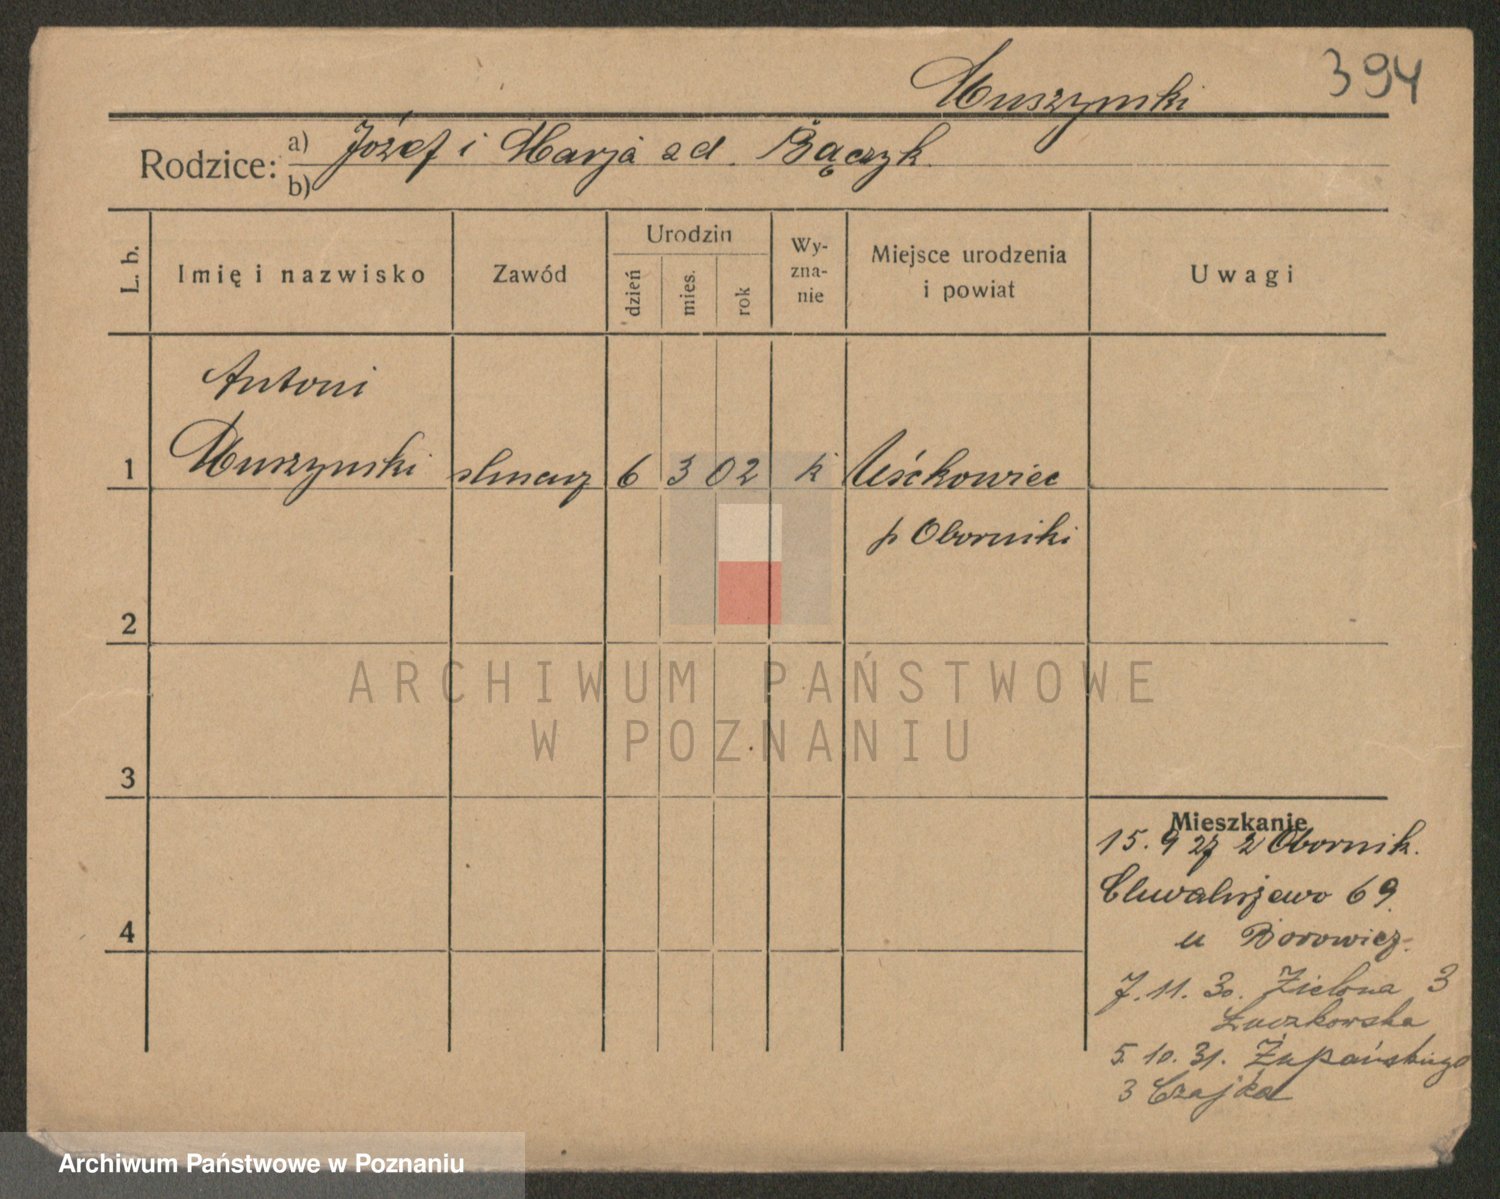 394
Muszynski
Rodzice: a) Józef i Marja od. Bączyk.
b)
L. b.
Imię i nazwisko
Zawód
Urodzin
dzień
mies.
rok
Wy-
zna-
nie
Miejsce urodzenia
i powiat
Uwagi
Antoni
1 Muszynski 6 3 02 k Uśckowiec
p Oborniki
2
ARCHIWUM PAŃSTWOWE
W POZNANIU
3
Mieszkanie
15. 9 27 z Obornik.
69
u Borowicz.
7. 11. 30. Zielona 3
Łuczkowska
5. 10. 31. Żupańskiego
3 Czajka
4
Archiwum Państwowe w Poznaniu